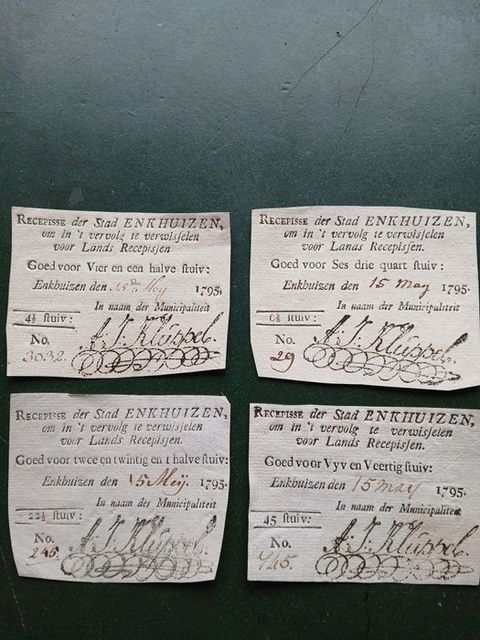 RECEPISSE der Stad ENKHUIZEN,
om in 't vervolg te verwisselen
voor Lands Recepissen.
Goed voor Vier en een halve stuiv:
Enkhuizen den 15de Meij 1795.
In naam der Municipaliteit
4½ stuiv:
No. A. J. Kluppel.
3032.
RECEPISSE der Stad ENKHUIZEN,
om in 't vervolg te verwisselen
voor Lands Recepissen.
Goed voor Ses drie quart stuiv:
Enkhuizen den 15 may 1795.
In naam der Municipaliteit
6¾ stuiv:
No. A. J. Kluppel.
29
RECEPISSE der Stad ENKHUIZEN,
om in 't vervolg te verwisselen
voor Lands Recepissen.
Goed voor twee en twintig en t halve stuiv:
Enkhuizen den 15 Meij. 1795.
In naam der Municipaliteit
22½ stuiv:
No. A. J. Kluppel.
245.
RECEPISSE der Stad ENKHUIZEN,
om in 't vervolg te verwisselen
voor Lands Recepissen.
Goed voor Vyv en Veertig stuiv:
Enkhuizen den 15 may 1795.
In naam der Municipaliteit
45 stuiv:
No. A. J. Kluppel.